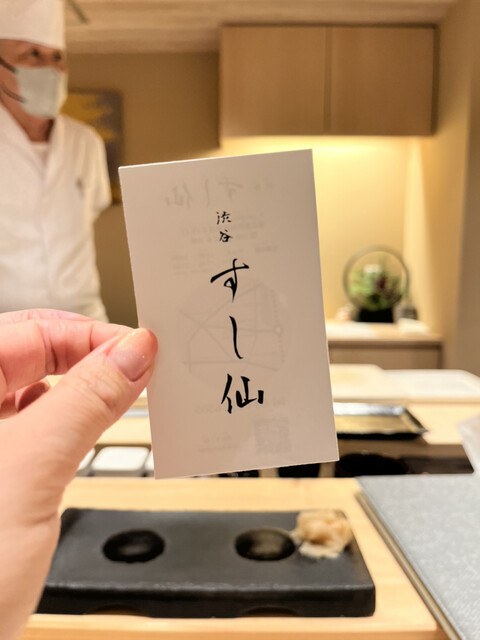 渋谷
すし仙